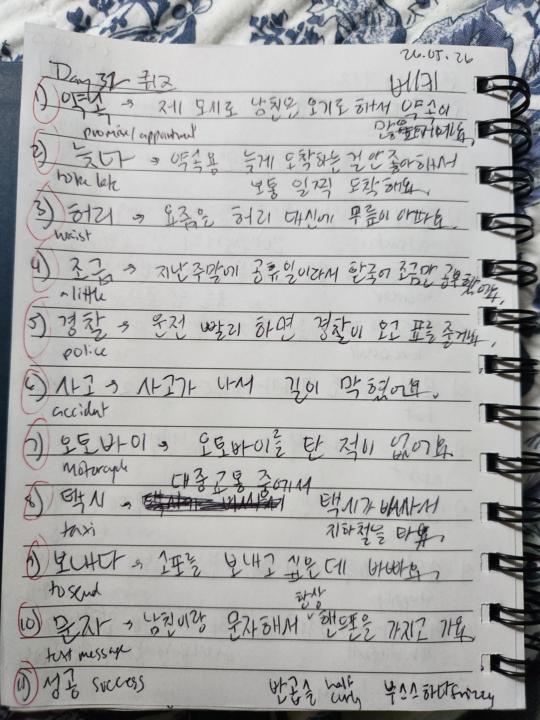 26.05.26
Day 32 퀴즈
베키
1) 약속 → 제 도시로 남친은 오기로 해서 약속이
promise/appointment 많을 거예요.
2) 늦다 → 약속용 늦게 도착하는 걸 안 좋아해서
to be late 보통 일찍 도착해요.
3) 허리 → 요즘은 허리 대신에 무릎이 아파요.
waist
4) 조금 → 지난 주말에 공휴일이라서 한국어 조금만 공부했어요.
a little
5) 경찰 → 운전 빨리 하면 경찰이 오고 표를 줄거예요.
police
6) 사고 → 사고가 나서 길이 막혔어요.
accident
7) 오토바이 → 오토바이를 탄 적이 없어요
motorcycle
대중교통 중에서
8) 택시 → 택시가 비싸서
taxi 지하철을 타요.
9) 보내다 → 소포를 보내고 싶은데 바빠요.
to send
항상
10) 문자 → 남친이랑 문자해서 핸드폰을 가지고 가요.
text message
11) 성공 success
반곱슬 half curly 부스스하다 frizzy